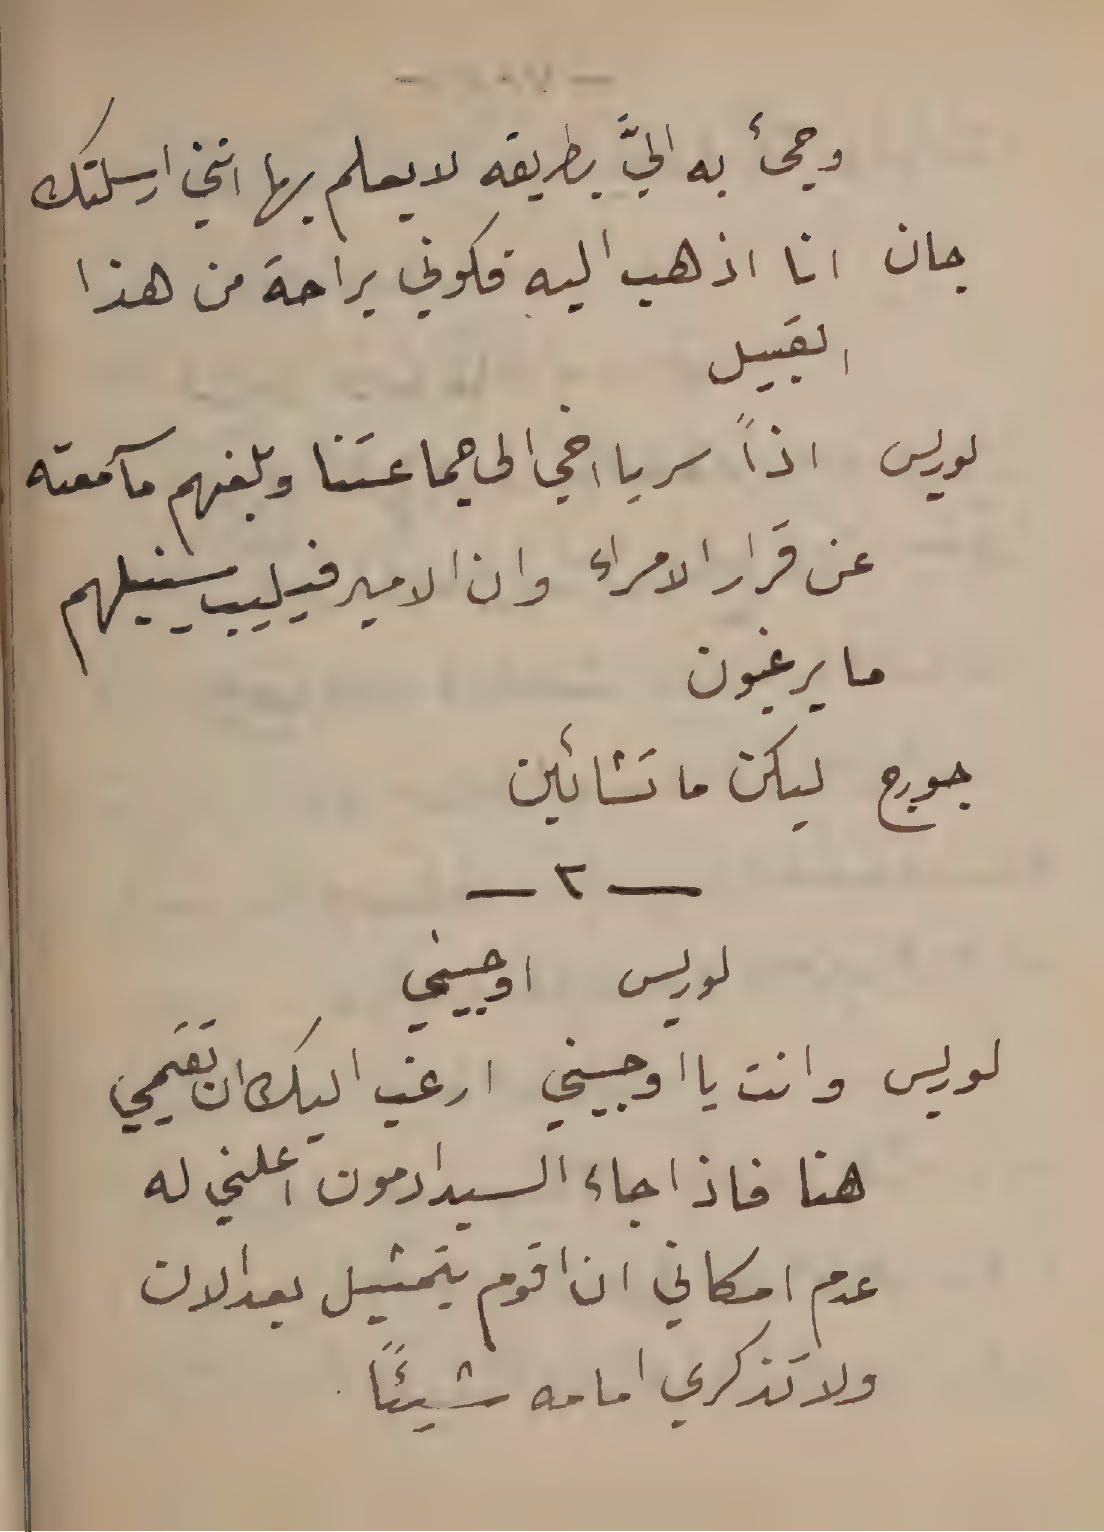 وجئ به اليَّ بطريقه لا يعلم بها انني ارسلتك
جان انا اذهب اليه فكوني براحة من هذا
القبيل
لوريس اذاً سر يا اخي الى جماعتنا وبلغهم ما سمعته
عن قرار الامراء وان الامير فيليب سينيلهم
ما يرغبون
جورج ليكن ما تشائين
— ٢ —
لوريس اوجيني
لوريس وانت يا اوجيني ارغب اليك ان تقيمي
هنا فاذا جاء السيد ادمون اعلني له
عدم امكاني ان اقوم بتمثيل بعد الان
ولا تذكري امامه شيئًا